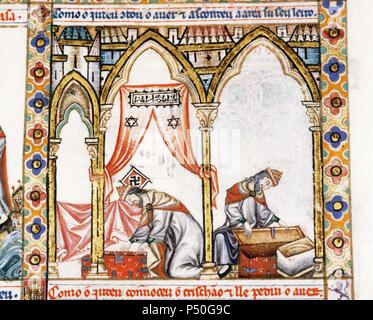 asa.
Como o iudeu o auer τ ascondeu a arca su seu leito.
Como o iudeu connoceu o crischão τ lle pediu o auer.
alamy
P50G9C